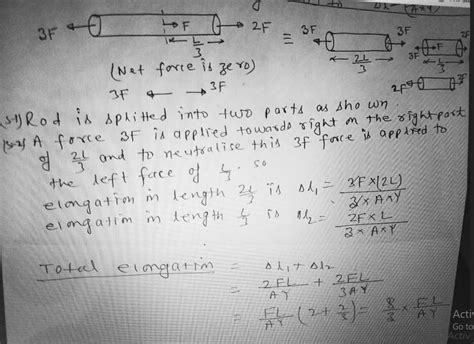 Δl × (A×Y)
3F F 2F ≡ 3F 3F 3F F 2F
L/3 2L/3 L/3
(Net force is zero) 2F 2F
3F 3F
(S-1) Rod is splitted into two parts as shown.
(S-2) A force 3F is applied towards right on the right part
of 2L/3 and to neutralise this 3F force is applied to
the left face of L/3. so
elongation in length 2L/3 is Δl₁ = 3F×(2L)/3×A×Y
elongatim in length L/3 is Δl₂ = 2F×L/3×A×Y
Total elongatim = Δl₁ + Δl₂
= 2FL/AY + 2FL/3AY
= FL/AY (2 + 2/3) = 8/3 × FL/AY
Activ
Go to